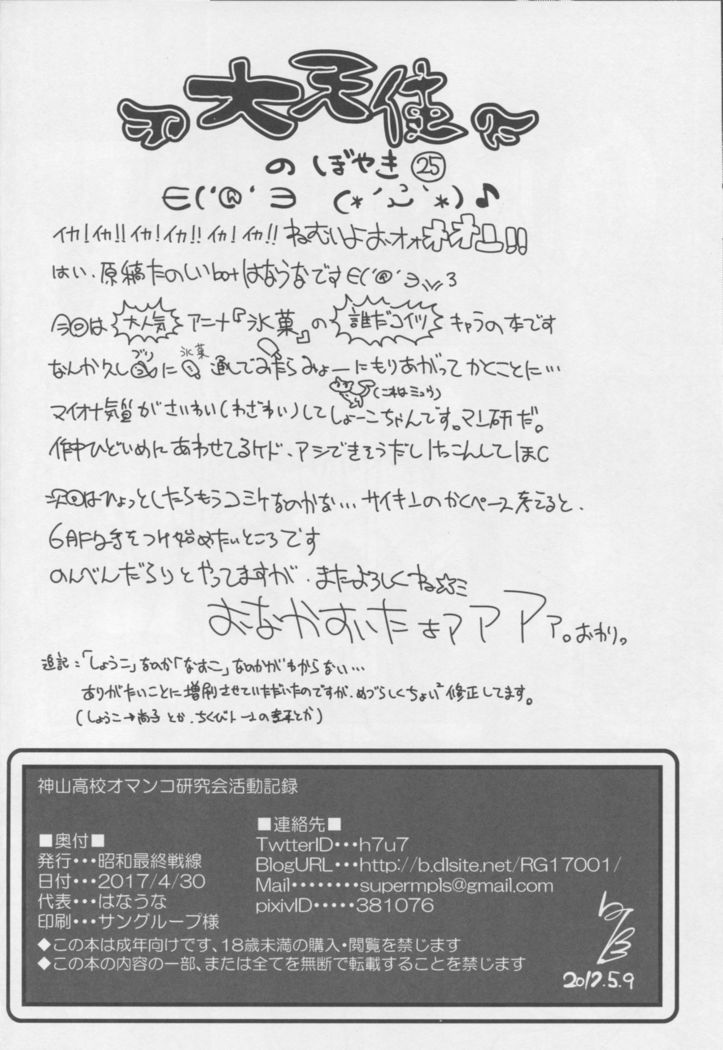 大天使
のぼやき㉕
∈('Ⓡ'∋ (*´ω`*)♪
イカ!イカ!!イカ!イカ!!イカ!イカ!!ねむいよおオォオオ!!
はい、原稿たのしいbotはなうなです∈('Ⓡ'∋
今回は大人気アニメ『氷菓』の誰だコイツキャラの本です
なんか久しぶりに氷菓通してみたらみょーにもりあがってかくことに…
(これはミュウ)
マイオナ気質がさいわい(わざわい)してしょーこちゃんです。マン研だ。
作中ひどいめにあわせてるケド、アシできそうだしけっこんしてほC
次回はひょっとしたらもうコミケなのかな… サイキンのかくペース考えると、
6月に手をつけ始めたいところです
のんべんだらりとやってますが、またよろしくね☆ミ
おなかすいたぁアアアァ。おわり。
追記:「しょうこ」なのか「なおこ」なのかがわからない…
ありがたいことに増刷させていただいたのですが、めづらしくちょい²修正してます。
(しょうこ→尚子とか、ちくびトーンの

神山高校オマンコ研究会活動記録
■奥付■
発行・・・昭和最終戦線
日付・・・2017/4/30
代表・・・はなうな
印刷・・・サングループ様
■連絡先■
TwtterID・・・h7u7
BlogURL・・・http://b.dlsite.net/RG17001/
Mail・・・・・・・・supermpls@gmail.com
pixivID・・・・・381076
◆この本は成年向けです、18歳未満の購入・閲覧を禁じます
◆この本の内容の一部、または全てを無断で転載することを禁じます
2017.5.9